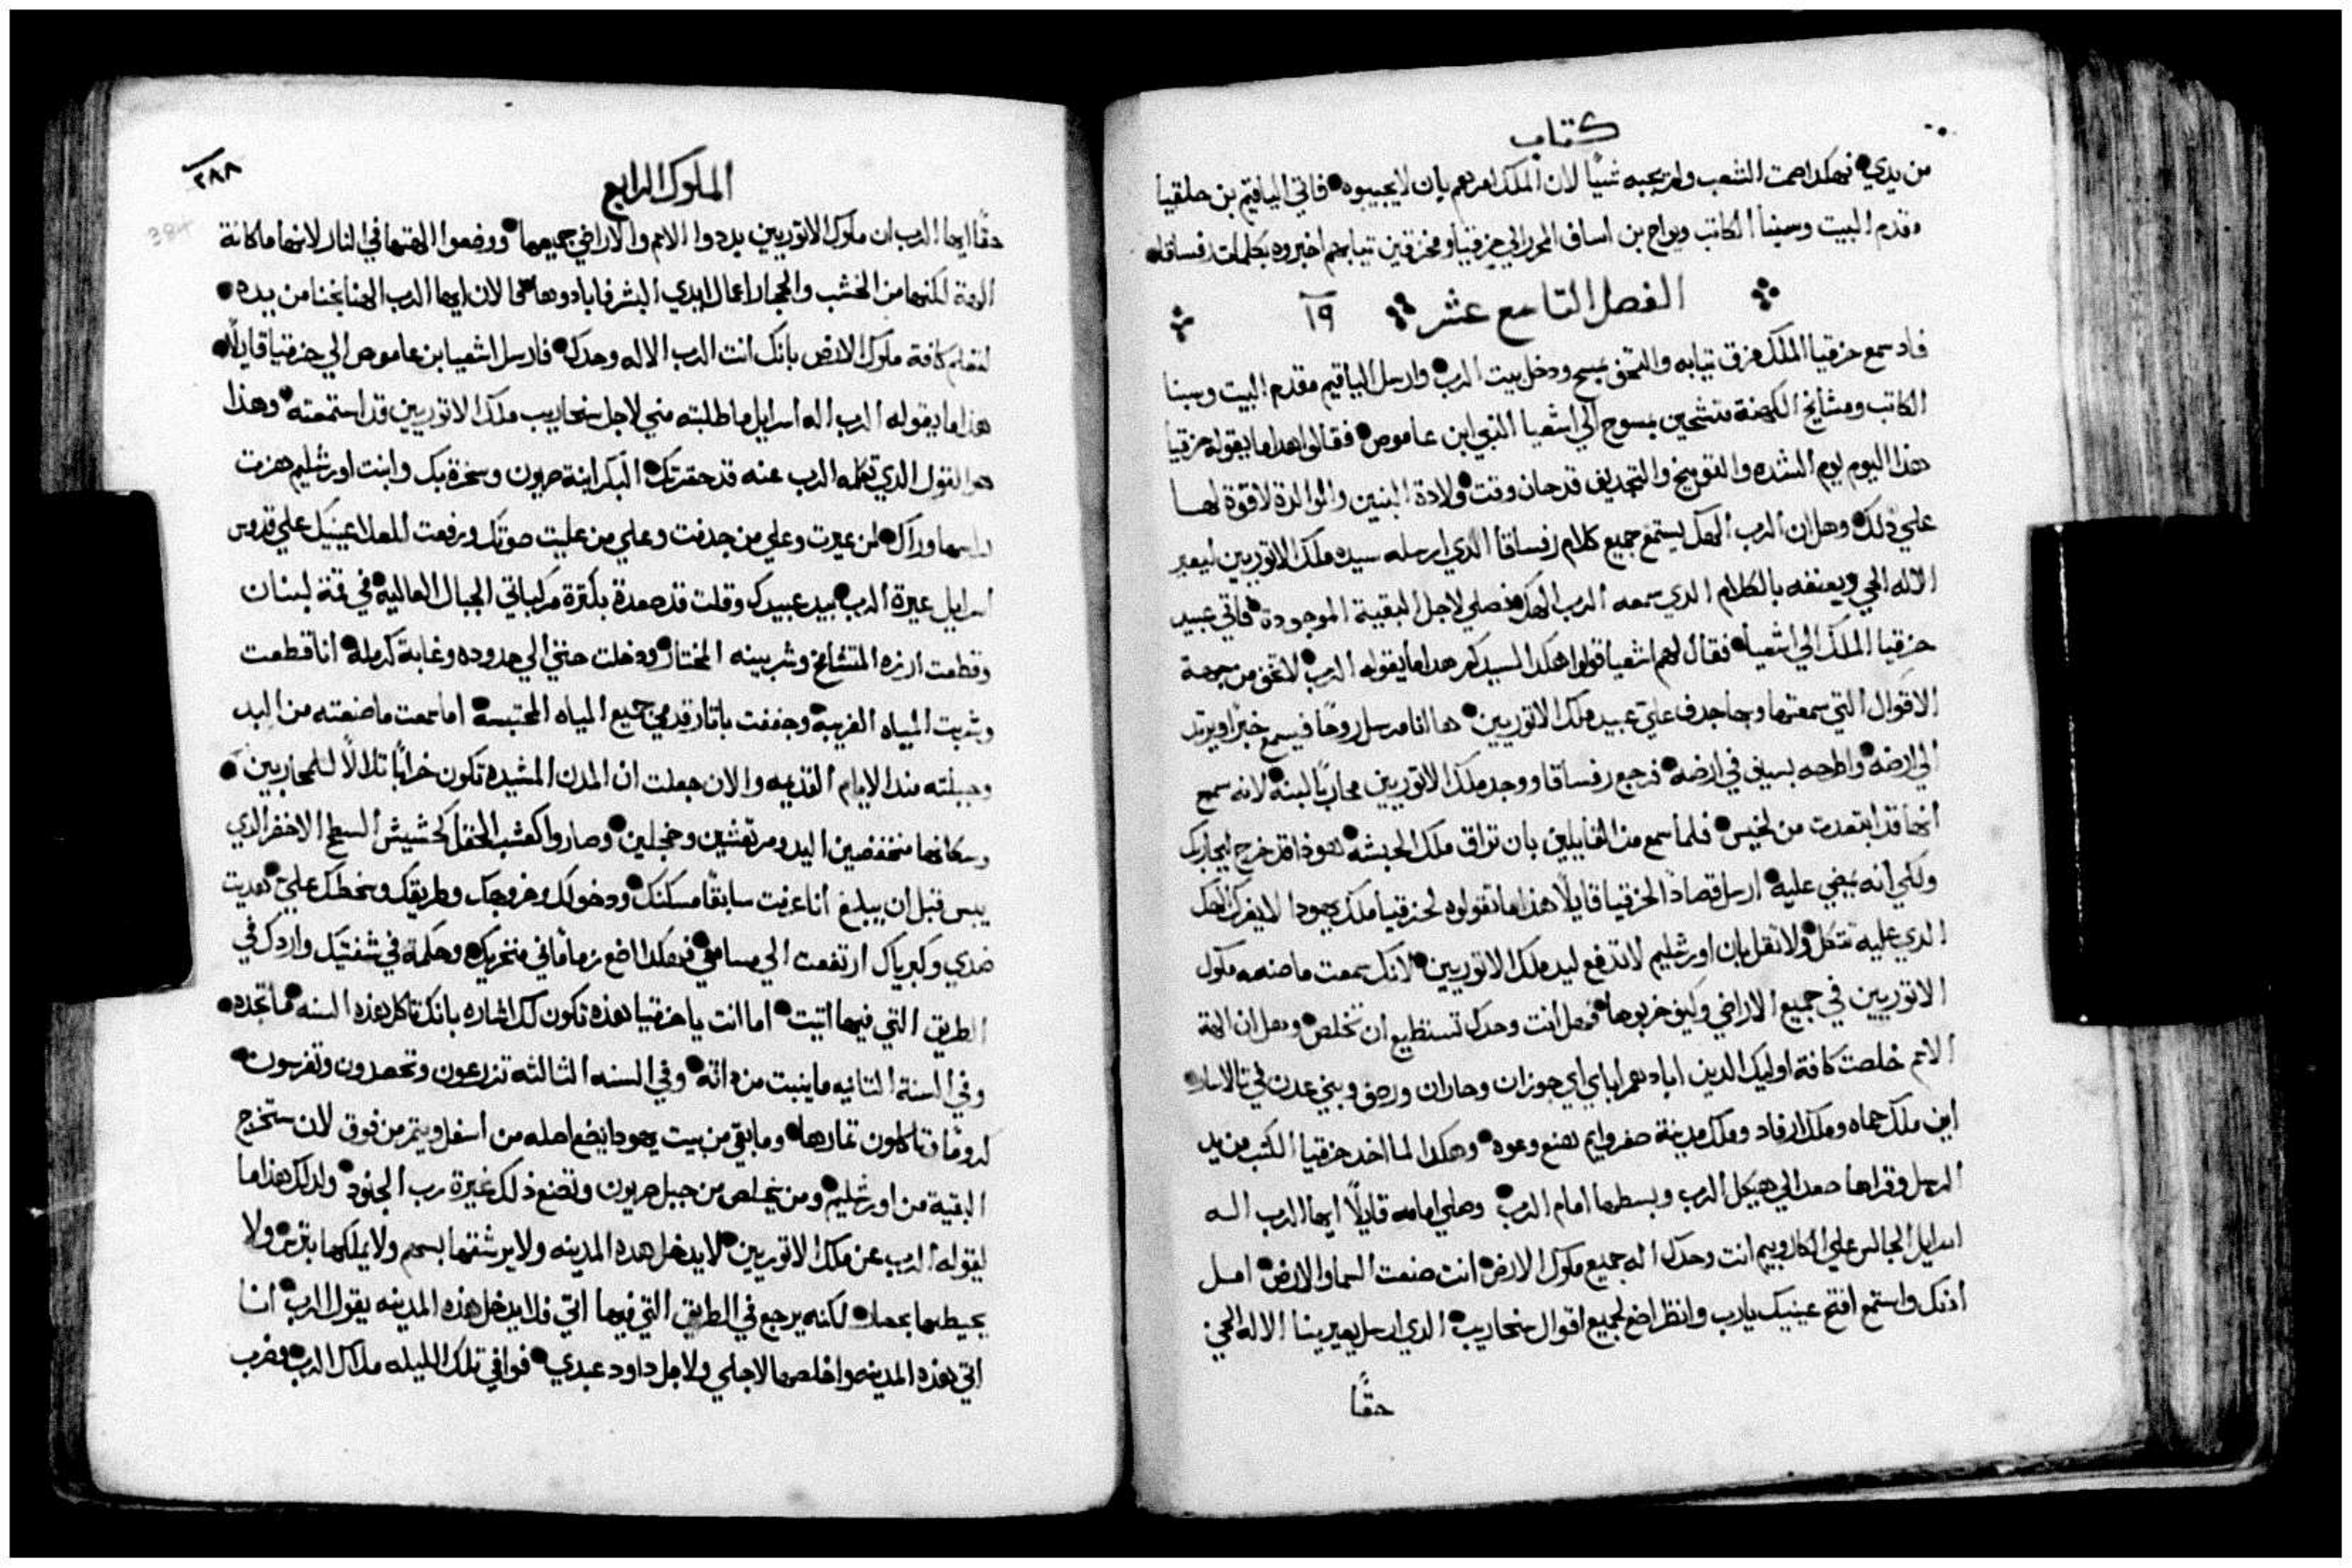 كتاب
من يدي فهكدا صمت الشعب ولم يجبه شيًا لان الملك امرهم بان لا يجيبوه فاتي الياقيم بن حلقيا
مقدم البيت وسبنا الكاتب ويواح بن اساف المحرر الي حزقيا ومخزقين تيابهم اخبروه بكلمات رفساقا
الفصل التاسع عشر ١٩
فاد سمع حزقيا الملك مزق تيابه والتحف بمسح ودخل بيت الرب وارسل الياقيم مقدم البيت وسبنا
الكاتب ومشايخ الكهنة متشحين بمسوح الي اشعيا النبي ابن عاموص فقالوا هدا ما يقوله حزقيا
هذا اليوم يوم الشده والتوبيخ والتجديف قد حان وقت ولادة البنين والوالدة لا قوة لها
علي ذلك وهل ان الرب الهك يستمع جميع كلام رفساقا الدي ارسله سيده ملك الاتوريين ليعير
الاله الحي ويعنفه بالكلام الدي سمعه الرب الهك فصلي لاجل البقية الموجودة فاتي عبيد
حزقيا الملك الي اشعيا فقال لهم اشعيا قولوا هكدا لسيدكم هدا ما يقوله الرب لا تخف من جهة
الاقوال التي سمعتها وبها جدف علي عبيد ملك الاتوريين ها انا مرسل روحًا فيسمع خبرًا ويرتد
الي ارضه واطرحه بسيف في ارضه فرجع رفساقا ووجد ملك الاتوريين محاربًا لبنة لانه سمع
انه قد ابتعد من لخيس فلما سمع من القايلين بان تراق ملك الحبشه هوذا قد خرج ليحاربك
ولكي انه يمضي عليه ارسل قصادًا لحزقيا قايلًا هذا ما تقولوه لحزقيا ملك يهودا لا يغرك الهك
الدي عليه تتكل ولا تقل بان اورشليم لا تدفع ليد ملك الاتوريين لانك سمعت ما صنعه ملوك
الاتوريين في جميع الاراضي وكيف خربوها فهل انت وحدك تستطيع ان تخلص وهل ان الهة
الامم خلصت كافة اوليك الدين ابادهم اباي اي جوزان وحاران ورصف وبني عدن في تالاسار
اين ملك حماه وملك ارفاد وملك مدينة صفروايم هنع وعوه وهكدا لما اخد حزقيا الكتب من يد
الرسل وقراها صعد الي هيكل الرب وبسطها امام الرب وصلي امامه قايلًا ايها الرب اله
اسرايل الجالس علي الكاروبيم انت وحدك اله جميع ملوك الارض انت صنعت السما والارض امل
أذنك واستمع افتح عينيك يارب وانظر اضغ لجميع اقوال سنحاريب الدي ارسل يعيرنا الاله الحي
حقًا
٣٨٨
384
الملوك الرابع
حقًا ايها الرب ان ملوك الاتوريين بددوا الامم والاراضي جميعها ووضعوا الهتها في النار لانها ما كانة
الهة لكنها من الخشب والحجار اعمال ايدي البشر فابادوها الان ايها الرب الهنا نجنا من يده
لتعلم كافة ملوك الارض بانك انت الرب الاله وحدك فارسل اشعيا بن عاموص الي حزقيا قايلًا
هذا ما يقوله الرب اله اسرايل ما طلبته مني لاجل سنحاريب ملك الاتوريين قد استمعته وهذا
هو القول الدي تكلمه الرب عنه قد حقرتك البكر ابنة صهيون وسخرة بك وابنت اورشليم هزت
راسها وراك لمن عيرت وعلي من جدفت وعلي من عليت صوتك ورفعت للعلا عينيك علي قدوس
اسرايل عيرة الرب بيد عبيدك وقلت قد صعدة بكترة مركباتي الجبال العالية في قمة لبنان
وقطعت ارزه المتشامخ وشربينه المختار ودخلت حتي الي حدوده وغابة كرمله انا قطعت
وشربت المياه الغريبة وجففت باتار قدمي جميع المياه المحتبسة اما سمعت ما صنعته من البد
وجبلته مند الايام القديمه والان جعلت ان المدن المشيده تكون خرابًا تلالًا للمحاربين
وسكانها منخفضين اليد ومرتعشين وخجلين وصاروا كعشب الحقل كحشيش السطح الاخضر الدي
يبس قبل ان يبلغ انا عرفت سابقًا مسكنك ودخولك وخروجك وطريقك وسخطك علي هديت
ضدي وكبرياك ارتفعت الي مسامعي فهكدا اضع زمامًا في منخريك وحكمة في شفتيك واردك في
الطريق التي فيها اتيت اما انت يا حزقيا هذه تكون لك اشاره بانك تاكل هذه السنه ما تجده
وفي السنة التانيه ما ينبت من داته وفي السنه الثالثه تزرعون وتحصدون وتغرسون
كرومًا وتاكلون تمارها وما بقي من بيت يهودا يضع اصله من اسفل ويثمر من فوق لان ستخرج
البقية من اورشليم ومن يخلص من جبل صهيون وتصنع ذلك غيرة رب الجنود ولدلك هذا ما
يقوله الرب عن ملك الاتوريين لا يدخل هده المدينه ولا يرشقها بسهم ولا يملكها بترس ولا
يحيطها بحصار لكنه يرجع في الطريق التي فيها اتي فلا يدخل هذه المدينه يقول الرب انا
اقي هذه المدينه واخلصها لاجلي ولاجل داود عبدي فوافي تلك الليله ملاك الرب وضرب